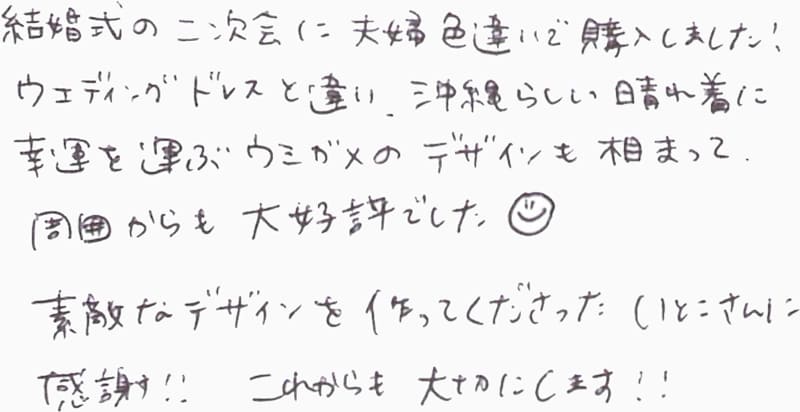 結婚式の二次会に夫婦色違いで購入しました!
ウェディングドレスと違い、沖縄らしい晴れ着に
幸運を運ぶウミガメのデザインも相まって、
周囲からも大好評でした☺
素敵なデザインを作ってくださったいとこさんに
感謝す!! これからも大切にします!!